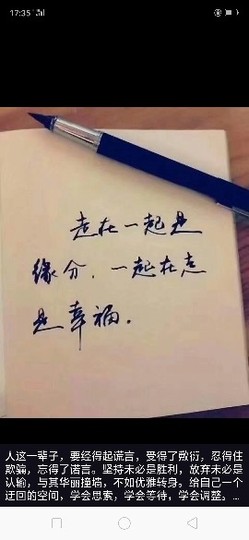 17:35
走在一起是
缘分，一起在走
是幸福。
人这一辈子，要经得起谎言，受得了敷衍，忍得住
欺骗，忘得了诺言。坚持未必是胜利，放弃未必是
认输，与其华丽撞墙，不如优雅转身。给自己一个
迂回的空间，学会思索，学会等待，学会调整。...